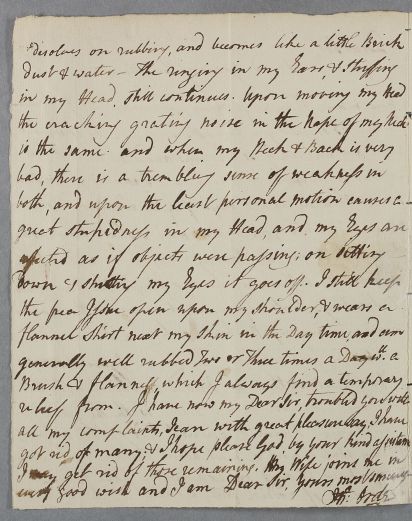 disolves on rubbing, and becomes like a little Brick
dust & water – the ringing in my Ears & Stuffing
in my Head, still continues. Upon moving my Head
the cracking grating noise in the Nape of my Neck
is the same. and when my Neck & Back is very
bad, there is a trembling sense of weakness in
both, and upon the least personal motion causes a
great stupidness in my Head, and my Eyes are
affected as if objects were passing; on sitting
down & shutting my Eyes it goes off. I still keep
the pea Issue open upon my shoulder, & wears a
flannel Shirt next my Skin in the Day time, and am
generally well rubbed two or three times a Day wth. a
Brush & flannel, which I always find a temporary
relief from. I have now my Dear Sir, troubled you with
all my complaints, I can with great pleasure say, I have
got rid of many, & I hope please God, by your kind assistance
I may get rid of those remaining. My Wife joins me in
every good wish and I am Dear Sir, yours most sincerely